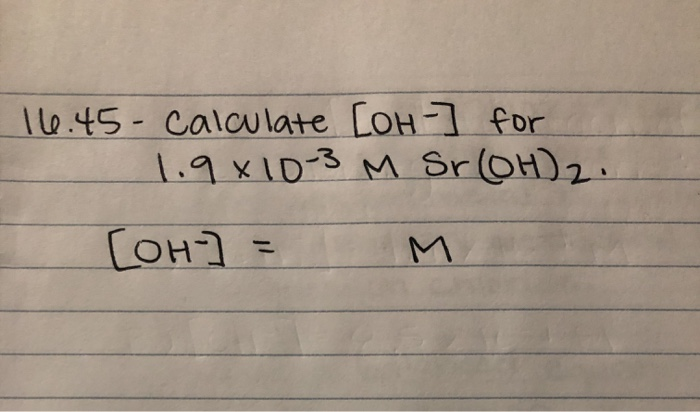 16.45 - Calculate [OH-] for
1.9 x 10-3 M Sr(OH)2.
[OH-] = M